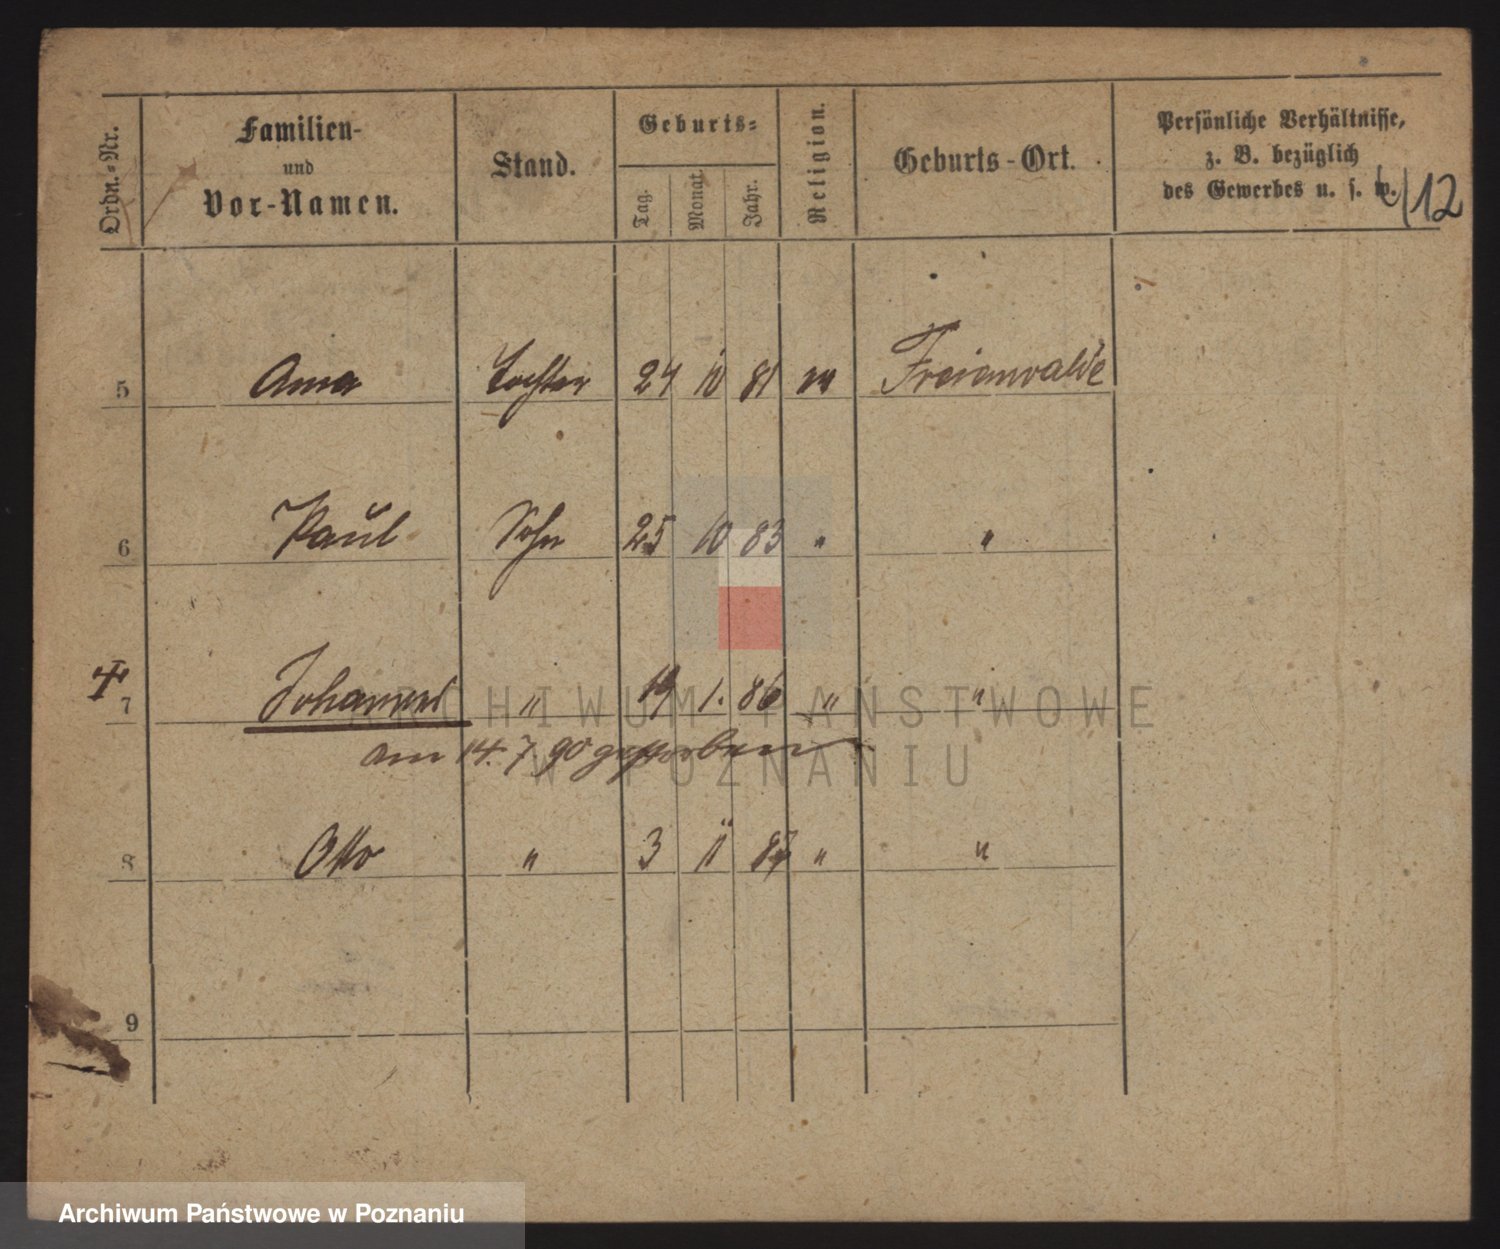 Ordn.-Nr.
Familien-
und
Vor-Namen.
Stand.
Geburts-
Tag.
Monat.
Jahr.
Religion.
Geburts-Ort.
Persönliche Verhältnisse,
z. B. bezüglich
des Gewerbes u. s. w.
12
5 Anna Tochter 24 10 81 Freienwalde
6 Paul Sohn 25 10 83 " "
7 Johannes " 19 1. 86 " "
am 14. 7. 90 gestorben
8 Otto " 3 11 87 " "
9
ARCHIWUM PAŃSTWOWE
W POZNANIU
Archiwum Państwowe w Poznaniu